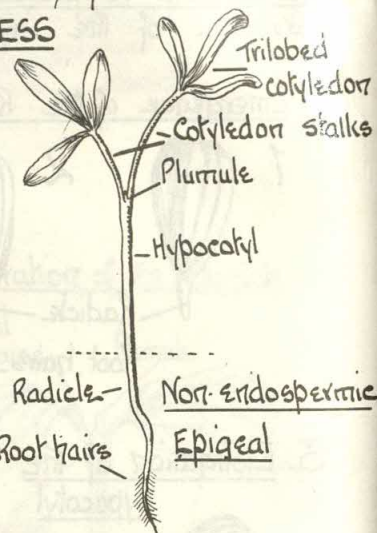 ESS
Trilobed
cotyledon
Cotyledon stalks
Plumule
Hypocotyl
Radicle
Non-endospermic
Root hairs
Epigeal